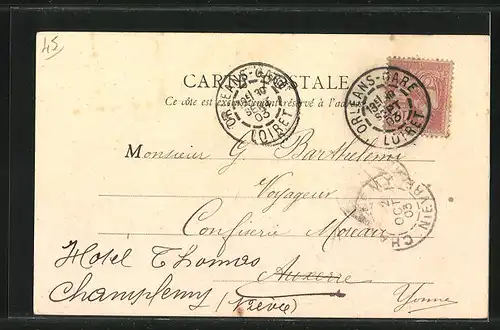 45
CARTE POSTALE
Ce côté est exclusivement réservé à l'adresse
ORLEANS-GARE
LOIRET
03
ORLEANS-GARE
LOIRET
03
Monsieur G. Barthelemi
Voyageur
2
OCT
03
NIEVRE
Confiserie Moreau
Hotel Thomas
Auxerre
Champlemy (Nievre)
Yonne